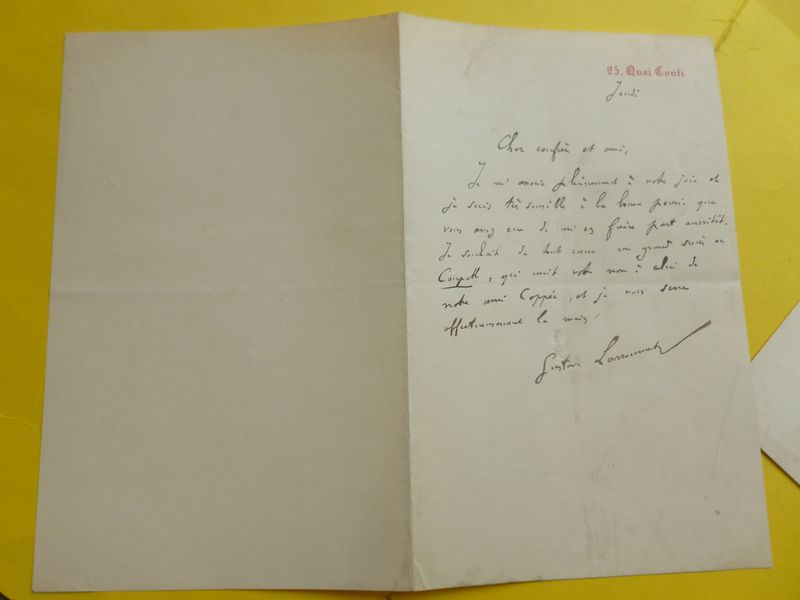 25, Quai Conti
Jeudi
Cher confrère et ami,
Je m'associe pleinement à votre joie et
je suis très sensible à la bonne pensée que
vous avez eue de m'en faire part aussitôt.
Je souhaite de tout cœur un grand succès au
Coupable, qui unit votre nom à celui de
notre ami Coppée, et je vous serre
affectueusement la main.
Gustave Larroumet